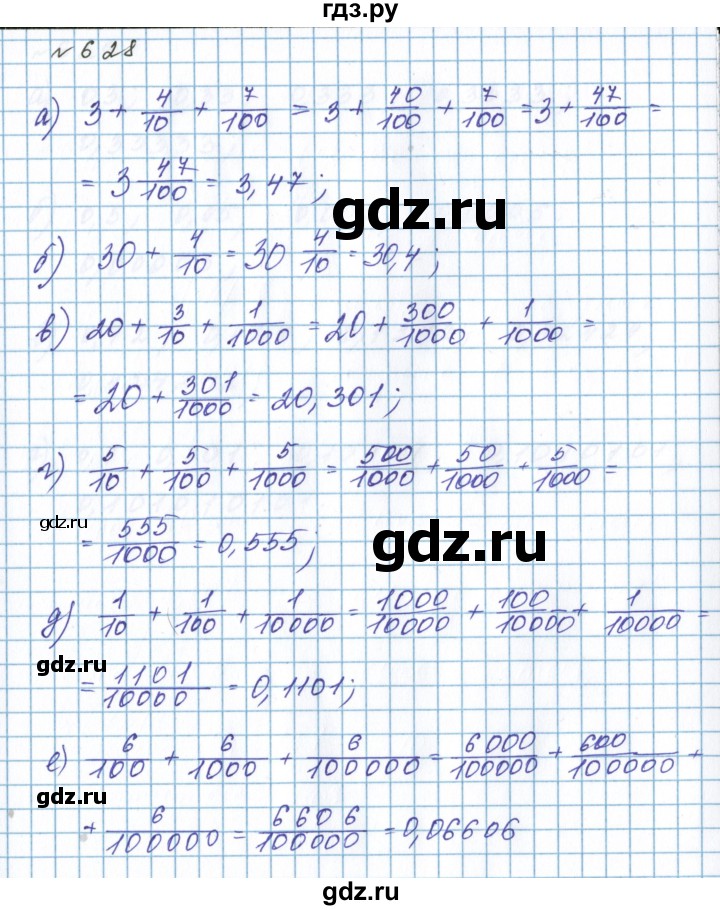 гдз.ру
№ 628
а) 3 + 4/10 + 7/100 = 3 + 40/100 + 7/100 = 3 + 47/100 =
= 3 47/100 = 3,47;
gdz.ru
б) 30 + 4/10 = 30 4/10 = 30,4;
в) 20 + 3/10 + 1/1000 = 20 + 300/1000 + 1/1000 =
= 20 + 301/1000 = 20,301;
г) 5/10 + 5/100 + 5/1000 = 500/1000 + 50/1000 + 5/1000 =
gdz.ru
= 555/1000 = 0,555;
gdz.ru
д) 1/10 + 1/100 + 1/10000 = 1000/10000 + 100/10000 + 1/10000 =
gdz.ru
= 1101/10000 = 0,1101;
е) 6/100 + 6/1000 + 6/100000 = 6000/100000 + 600/100000 +
gdz.ru
+ 6/100000 = 6606/100000 = 0,06606
gdz.ru